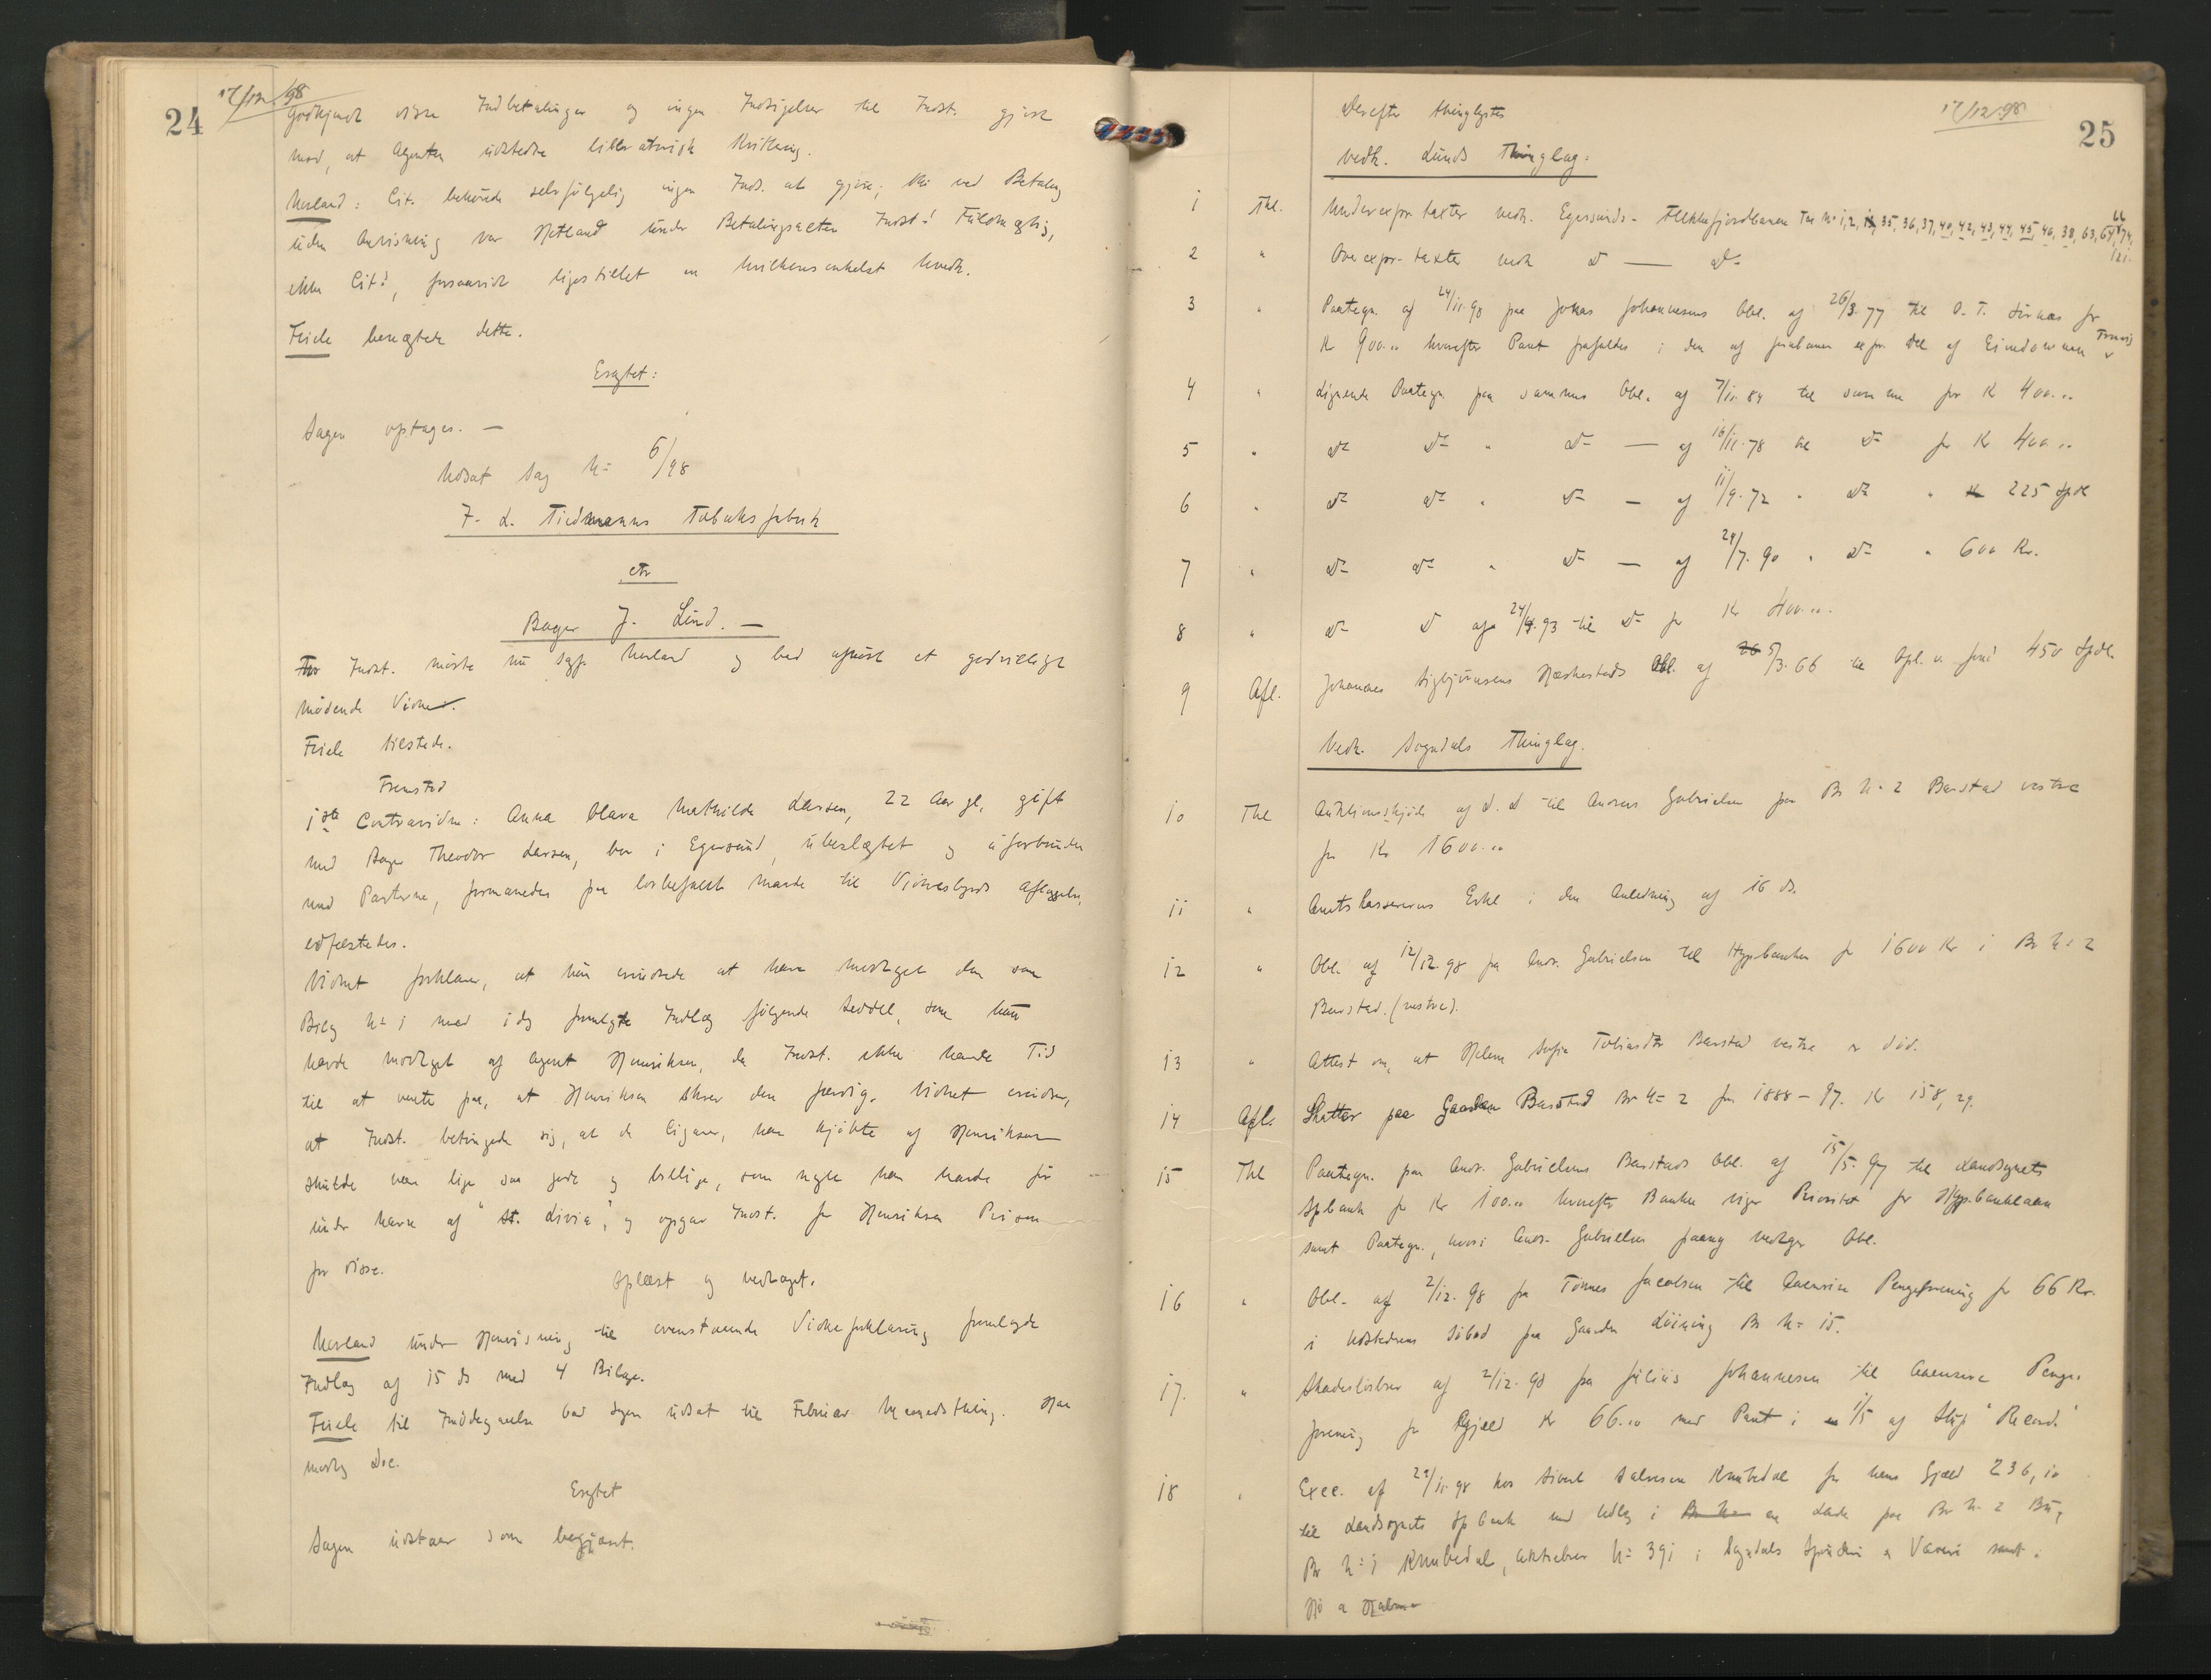 24
17/12 98
Godkjendt disse Indbetalinger og ingen Indsigelser til Indst. gjort
mod, at Agenten udstedte liberatorisk Kvittering.
Unland: Cit. behøvede selvfølgelig ingen Inds. at gjøre; thi ved Betaling
uden Anvisning var Hetland under Betalingsacten Indst.s Fuldmægtig,
ikke Cit.s, forsaavidt ligestillet en hvilkensomhelst Kvedk.
Feiele benægtede dette.
Eragtet:
Sagen optages. —
Udsat Sag No 6/98
J. L. Tiedmanns Tobaksfabrik
ctr
Bager J. Lind. —
For Indst. mødte nu Sagf. Unland og bad afhørt et godvilligt
mødende Vidne.
Feiele tilstede.
Fremstod
1ste Contravidne: Anna Olava Mathilde Larsen, 22 Aar gl, gift
med Bager Theodor Larsen, bor i Egersund, ubeslægtet og uforbunden
med Parterne, formanedes paa lovbefalet Maade til Vidnesbyrds Aflæggelse,
edfæstedes.
Vidnet forklarer, at hun erindrede at have modtaget den som
Bilag No 1 med idag fremlagte Indlæg følgende Seddel, som hun
havde modtaget af Agent Henriksen, da Indst. ikke havde Tid
til at vente paa, at Henriksen skrev den færdig. Vidnet erindrer,
at Indst. betingede sig, at de Cigarer, han kjøbte af Henriksen
skulde være lige saa gode og billige, som nogle han havde før
under Navn af "St. Livia", og opgav Indst. for Henriksen Prisen
for disse.
Oplæst og vedtaget.
Unland under Henvisning til ovenstaaende Vidneforklaring fremlagde
Indlæg af 15 ds med 4 Bilage.
Feiele til Imødegaaelse bad Sagen udsat til Februar Maanedsthing. Han
modtog Doc.
Eragtet
Sagen udstaar som begjært.
17/12 98
25
Derefter thinglystes
Vedk. Lunds Thinglag:
1 Thl. Underexpr. taxter vedk. Egersunds-Flekkefjordbanen Tax No 1, 2, 35, 36, 37, 40, 42, 43, 44, 45, 46, 38, 63, 64, 66, 74, 121.
2 " Overexpr. taxter vedk do — do
3 " Paategn. af 24/11 98 paa Jonas Johannesens Obl. af 26/3 77 til O. T. for
Kr 900.00 hvorefter Pant frafaldes i den af Jernbanen expr. Del af Eiendommen
4 " Lignende Paategn. paa sammes Obl. af 7/11 84 til samme for Kr 400.00
5 " do do " do — af 16/11 78 til do for Kr 400.00
6 " do do " do — af 11/9 72 " do " 225 Spdl
7 " do do " do — af 24/7 90 " do " 600 Kr.
8 " do do af 24/4 93 til do for Kr 400.00.
9 Afl. Johannes Sigbjørnsens Obl. af 5/3 66 til Opl. v. Fond 450 Spdl.
Vedk. Sogndals Thinglag.
10 Thl Auktionsskjøde af d. d. til Andreas Gabrielsen paa Br No 2 Barstad vestre
for Kr 1600.00
11 " Amtskassererens Erkl i den Anledning af 16 ds.
12 " Obl. af 12/12 98 fra Andr. Gabrielsen til Hypbanken for 1600 Kr i Br No 2
Barstad. (vestre).
13 " Attest om, at Helene Sofie Tobiasdtr Barstad vestre er død.
14 Afl. Skatter paa Gaarden Barstad Br No 2 for 1888 – 97. Kr 158,29.
15 Thl Paategn. paa Andr. Gabrielsens Barstads Obl. af 15/5 97 til Landsognets
Spbank for Kr 100.00 hvorefter Banken viger Prioritet for Hyp.banklaan
samt Paategn., hvori Andr. Gabrielsen paany vedtager Obl.
16 " Obl. af 2/12 98 fra Tønnes Jacobsen til Aaensire Pengeforening for 66 Kr.
i Udstederens Søbod paa Gaarden Løining Br No 15.
17. " Skadesløsbrev af 2/12 98 fra Julius Johannesen til Aaensire Penge-
forening for Gjæld Kr 66.00 med Pant i 1/5 af Skip "Record."
18 " Exec. af 29/11 98 hos Sivert Salvesen Krubedal for hans Gjæld 236,10
til Landsognets Spbank med Udlæg i en Lade paa Br No 2 Bu,
Br No 1 Krubedal, Aktiebrev No 391 i Sogndals Spinderi & Væveri samt
Hø & Halm